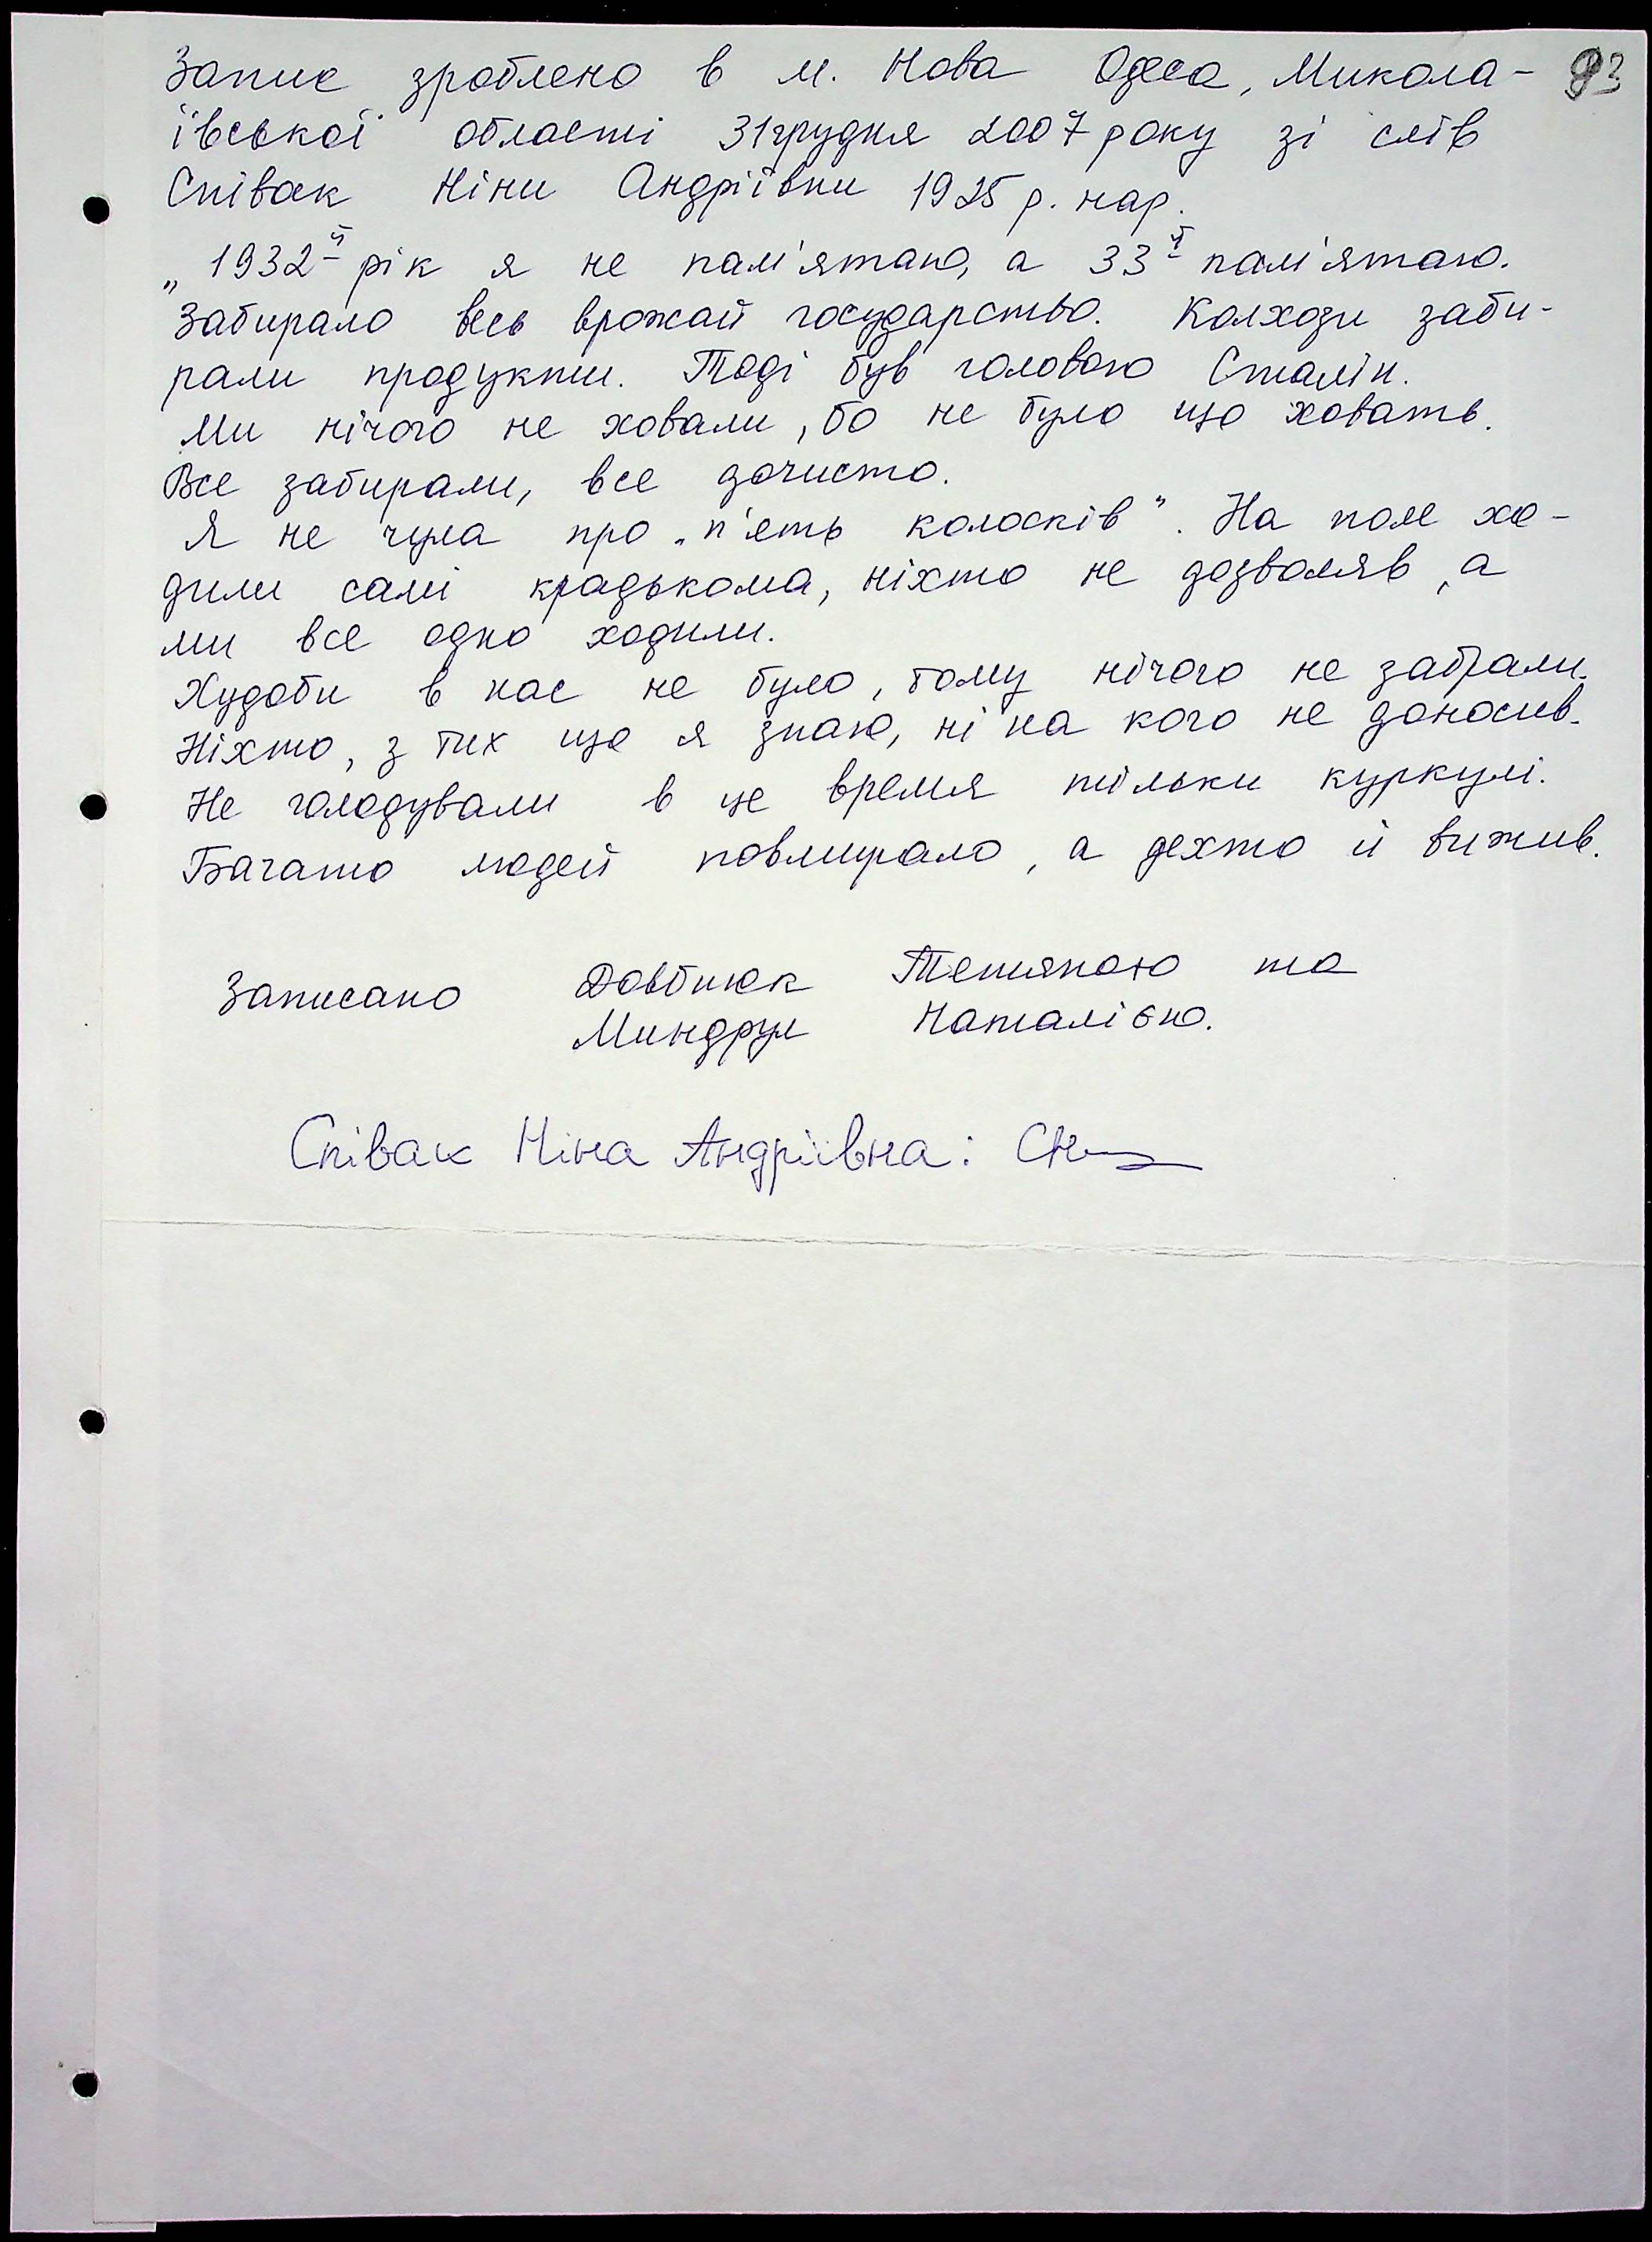 Запис зроблено в м. Нова Одеса, Микола-
ївської області 31 грудня 2007 року зі слів
Співак Ніни Андріївни 1925 р. нар.
„1932-й рік я не пам'ятаю, а 33-й пам'ятаю.
Забирало весь врожай государство. Колхози заби-
рали продукти. Тоді був головою Сталін.
Ми нічого не ховали, бо не було що ховать.
Все забирали, все дочисто.
Я не чула про „п'ять колосків". На поле хо-
дили самі крадькома, ніхто не дозволяв, а
ми все одно ходили.
Худоби в нас не було, тому нічого не забрали.
Ніхто, з тих що я знаю, ні на кого не доносив.
Не голодували в це время тільки куркулі.
Багато людей повмирало, а дехто й вижив.
Записано Довбнюк Тетяною та
Миндрул Наталією.
Співак Ніна Андріївна: